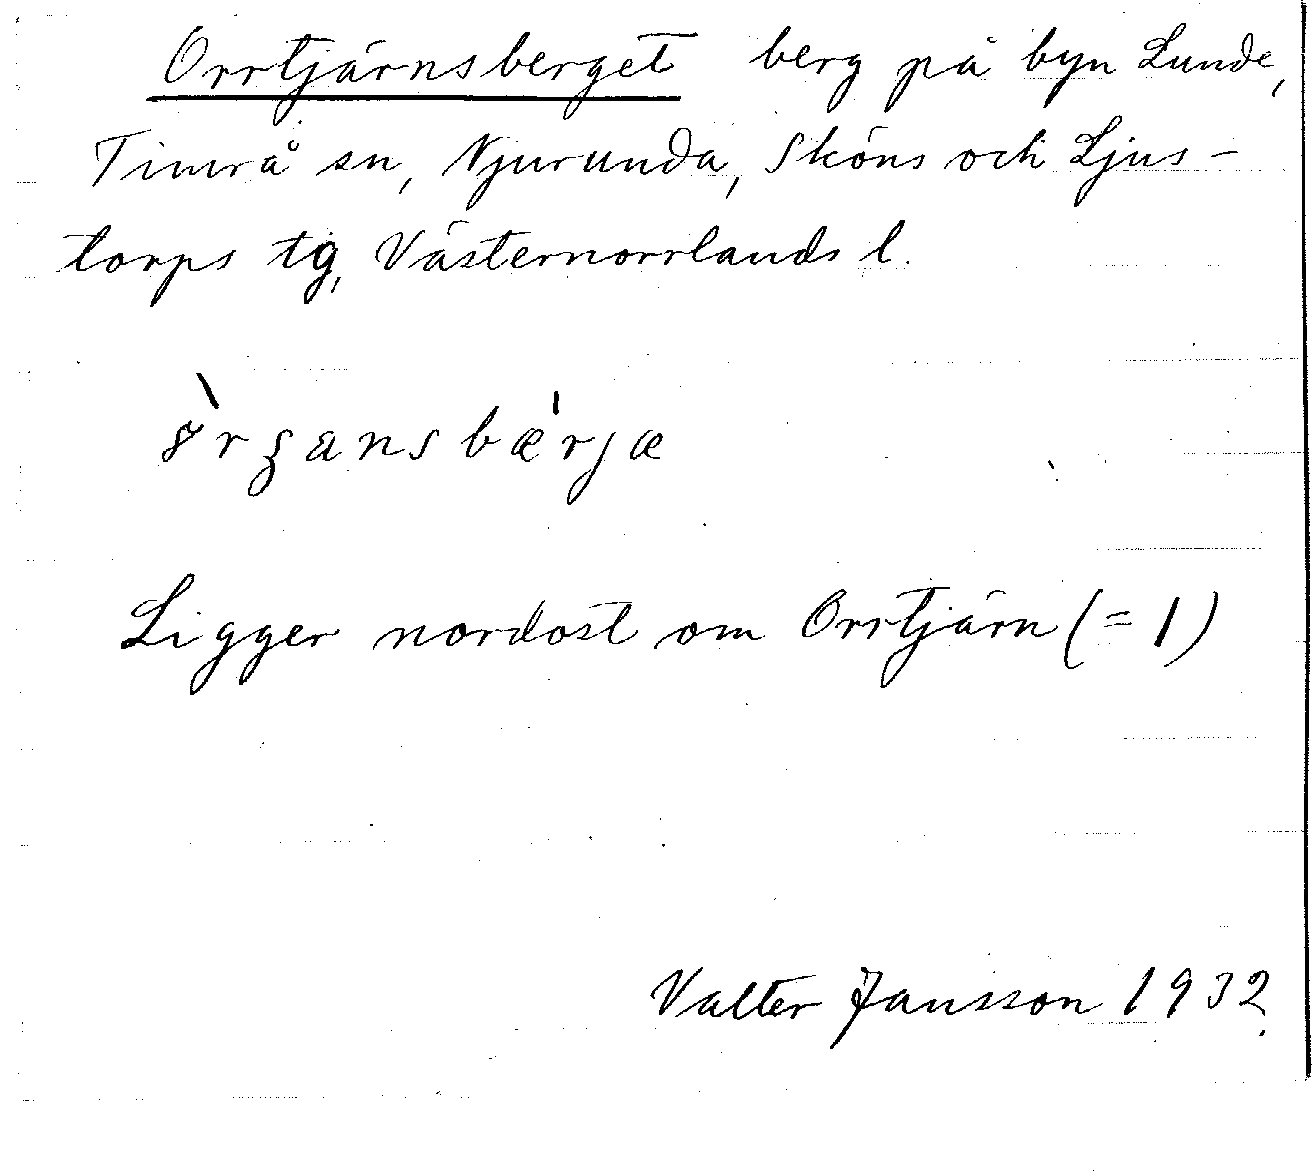 Orrtjärnsberget berg på byn Lunde,
Timrå sn, Njurunda, Sköns och Ljus-
torps tg, Västernorrlands l.
Ligger nordost om Orrtjärn (= 1)
Valter Jansson 1932.